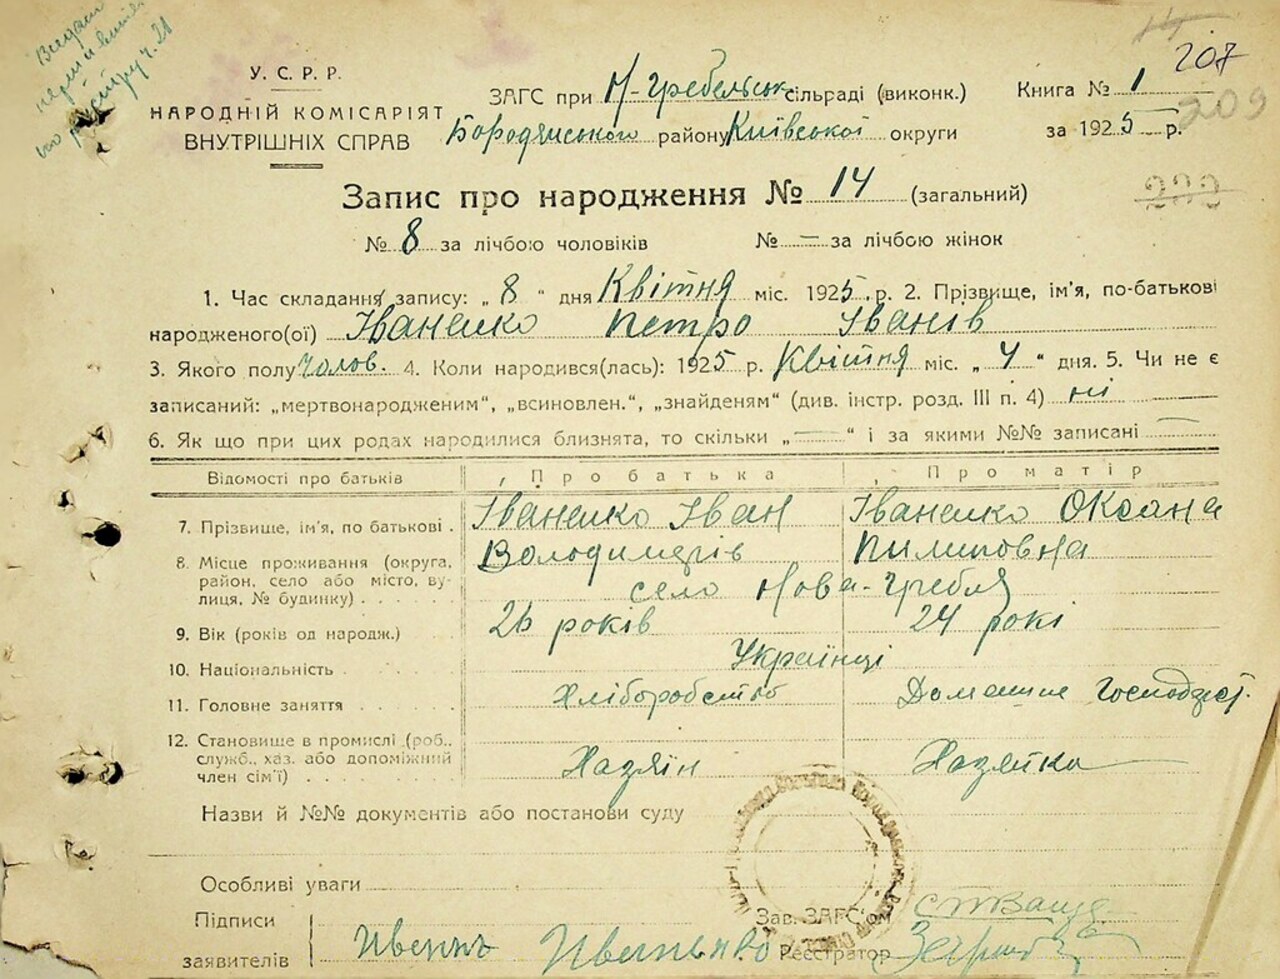 У. С. Р. Р.
НАРОДНІЙ КОМІСАРІЯТ
ВНУТРІШНІХ СПРАВ
ЗАГС при Н-Гребельськ сільраді (виконк.)
Бородянського району Київської округи
Книга № 1
за 1925 р.
207
209
Запис про народження № 14 (загальний)
№ 8 за лічбою чоловіків № — за лічбою жінок
1. Час складання запису: „ 8 “ дня Квітня міс. 1925 р. 2. Прізвище, ім'я, по-батькові
народженого(ої) Іваненко Петро Іванів
3. Якого полу Чолов. 4. Коли народився(лась): 1925 р. Квітня міс. „ 4 “ дня. 5. Чи не є
записаний: „мертвонародженим“, „всиновлен.“, „знайденям“ (див. інстр. розд. III п. 4) ні
6. Як що при цих родах народилися близнята, то скільки „—“ і за якими №№ записані —
Відомості про батьків Про батька Про матір
7. Прізвище, ім'я, по батькові . Іваненко Іван Іваненко Оксана
Володимерів Пилиповна
8. Місце проживання (округа,
район, село або місто, ву-
лиця, № будинку) . . . . . село Нова-Гребля
9. Вік (років од народж.) 26 років 24 рокі
10. Національність Українці
11. Головне заняття . . . . . Хліборобство Домашне Господарст.
12. Становище в промислі (роб.,
служб., хаз. або допоміжний
член сім'ї) . . . . . . . Хазяїн Хазяйка
Назви й №№ документів або постанови суду
Особливі уваги
Підписи
заявителів
Зав. ЗАГС'ом
Реєстратор